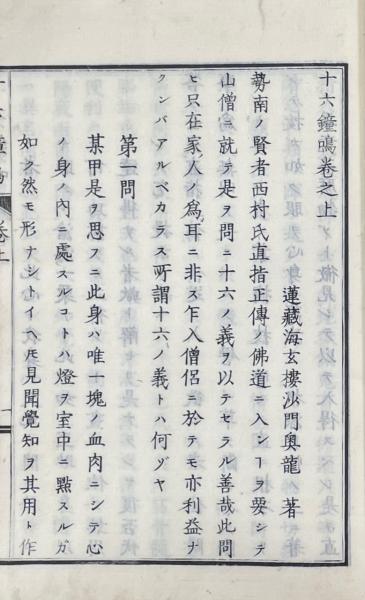 十六鐘鳴卷之上
蓮藏海玄樓沙門奧龍著
勢南ノ賢者西村氏直指正傳ノ佛道ニ入ンヿヲ要シテ
山僧ニ就テ是ヲ問ニ十六ノ義ヲ以テセラル善哉此問
ヒ只在家人ノ爲耳ニ非ス乍入僧侶ニ於テモ亦利益ナ
クンバアルベカラス所謂十六ノ義トハ何ゾヤ
第一問
某甲是ヲ思フニ此身ハ唯一塊ノ血肉ニシテ心
ノ身ノ內ニ處スルコトハ燈ヲ室中ニ點スルガ
如ク然モ形ナシトイヘ𪜈見聞覺知ヲ其用ト作